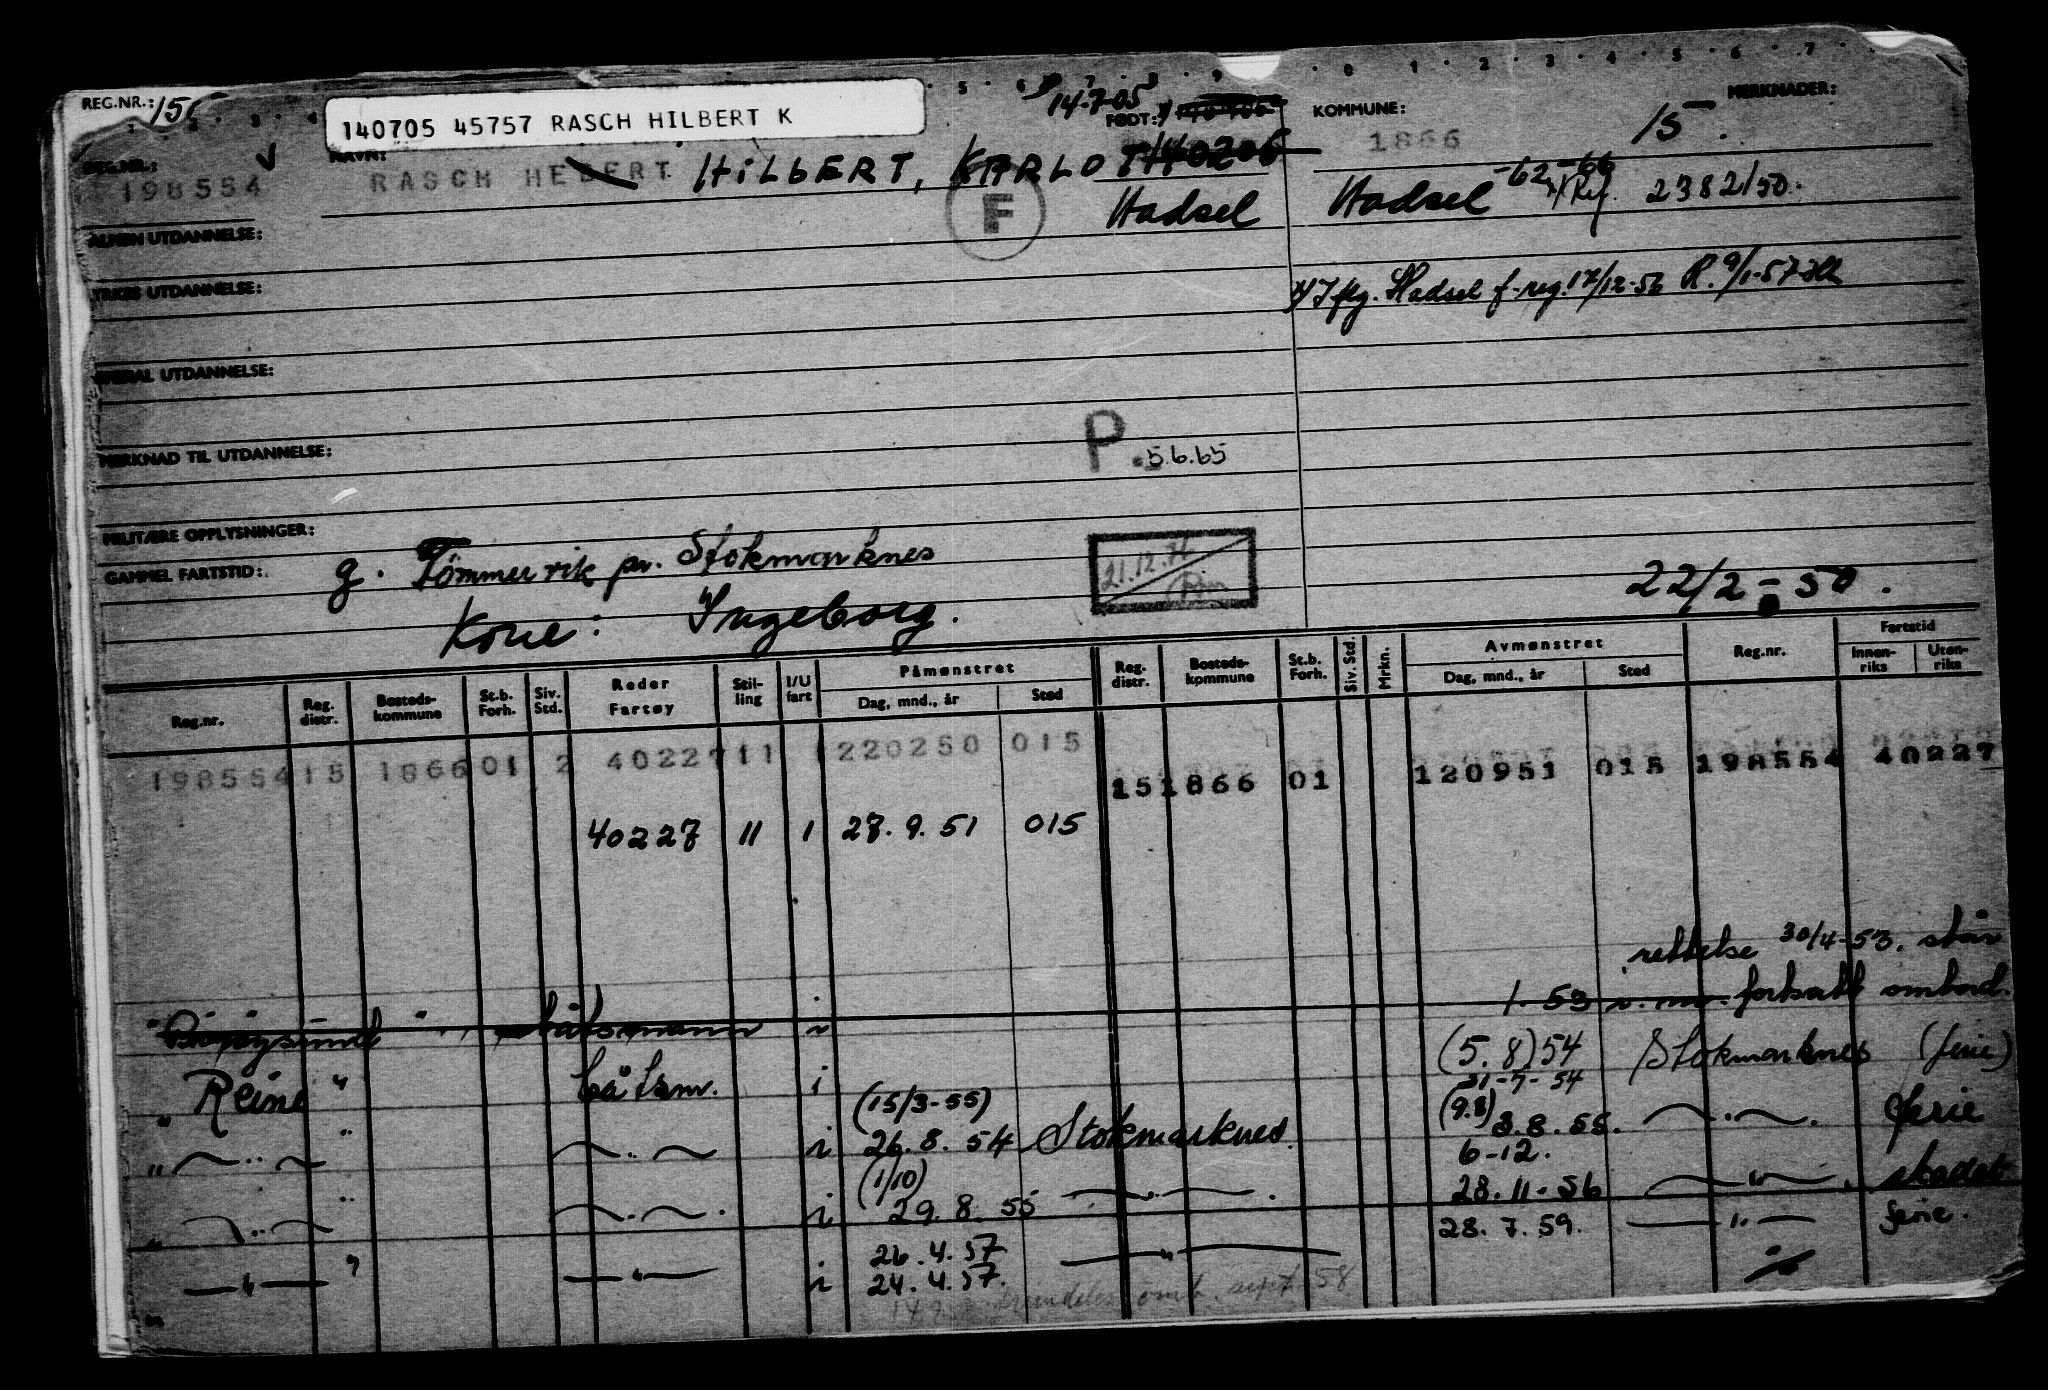 REG.NR.: 15
140705 45757 RASCH HILBERT K
14-7-05
FØDT:
KOMMUNE:
MERKNADER:
REG.NR.:
NAVN:
198554
RASCH HEBERT HILBERT, KARLOT 140206
1866
15.
F
Hadsel
Hadsel -62-66
2382/50.
ALMEN UTDANNELSE:
YRKES UTDANNELSE:
Hadsel f-reg. 17/12-56 R. 9/1-57
SPESIAL UTDANNELSE:
MERKNAD TIL UTDANNELSE:
P. 5.6.65
MILITÆRE OPPLYSNINGER:
GAMMEL FARTSTID:
g. Tømmervik pr. Stokmarknes
21.12.76
22/2-50.
Kone: Ingeborg.
Reg.nr. Reg. distr. Bosteds-kommune St.b. Forh. Siv. Std. Reder Fartøy Stil-ling I/U fart Påmønstret Dag, mnd., år Sted Reg. distr. Bosteds-kommune St.b. Forh. Siv. Std. Mrkn. Avmønstret Dag, mnd., år Sted Reg.nr. Fartstid Innen-riks Uten-riks
198554 15 1866 01 2 40227 11 1 220250 015 15 1866 01 120951 015 198554 40227
40227 11 1 27.9.51 015
rettelse 30/4-53. står
båtsmann i 1.53 fortsatt ombord.
" Reine " båtsm. i (5.8) 54 Stokmarknes (ferie)
31-7-54
(15/3-55) (9.8)
" " i 26.8.54 Stokmarknes 3.8.55. " ferie
(1/10) 6-12.
" " i 29.8.55 " 28.11-56 "
26.4.57 28.7.59. " ferie.
" " i 24.4.57. "
sept. 58